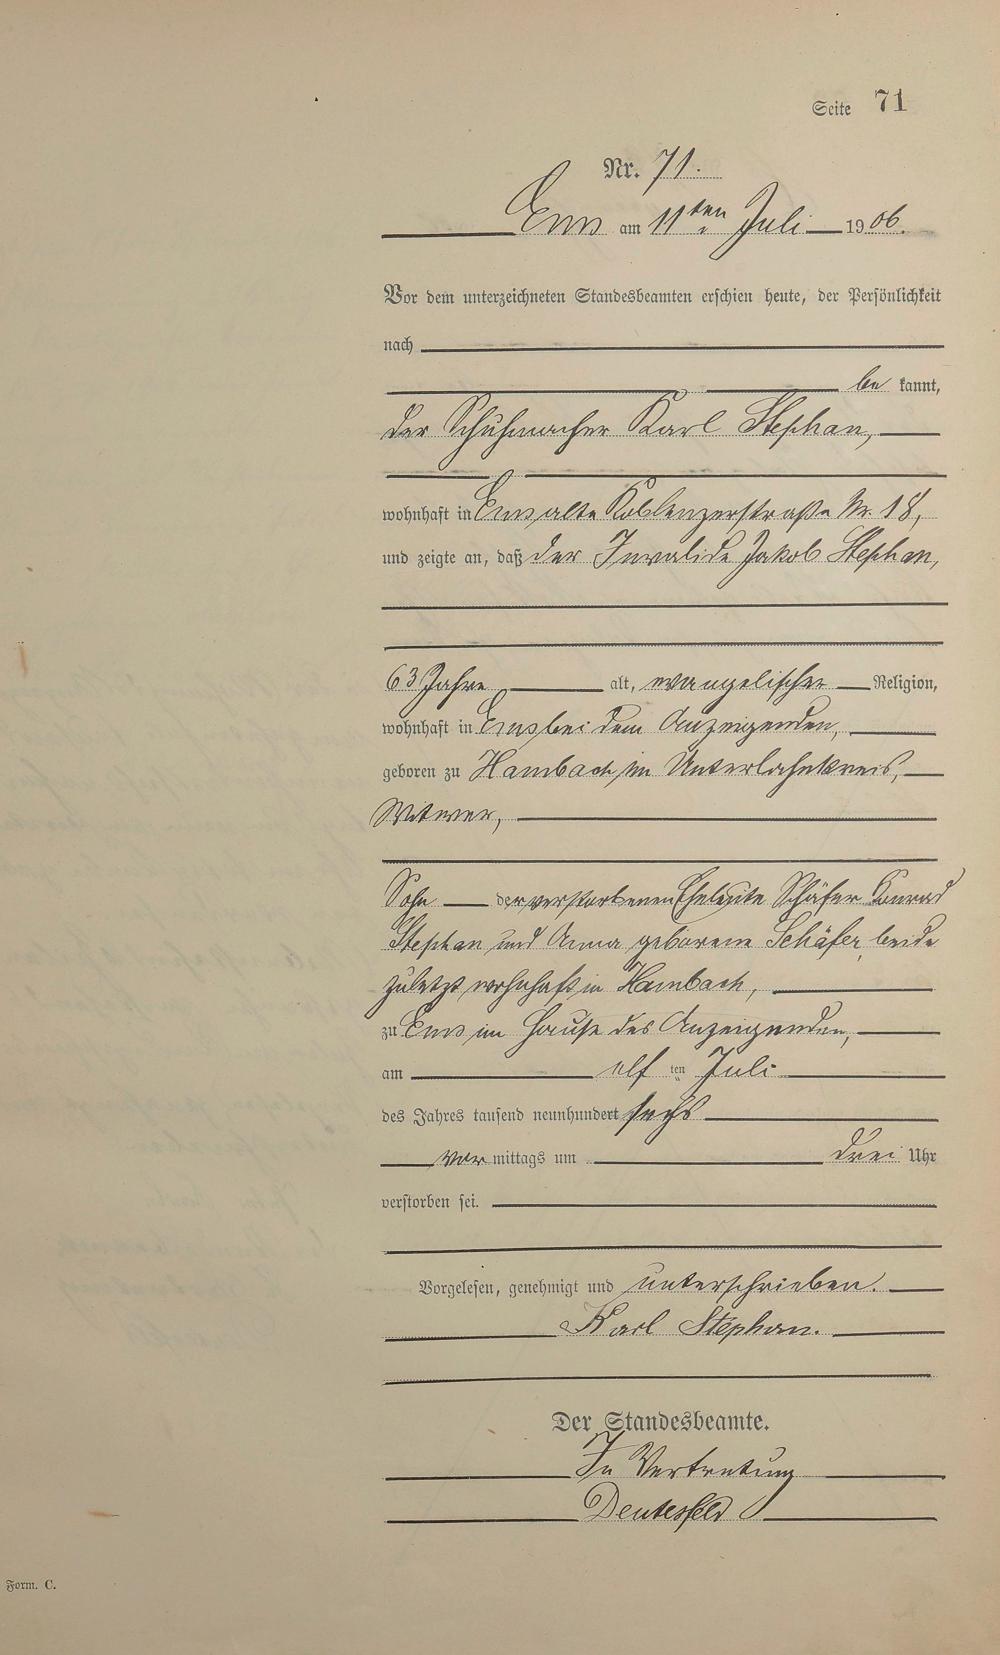 Seite 71
Nr. 71.
Ems am 11ten Juli 1906.
Vor dem unterzeichneten Standesbeamten erschien heute, der Persönlichkeit
nach
be kannt,
der Schuhmacher Karl Stephan,
wohnhaft in Ems alte Koblenzerstraße Nr. 18,
und zeigte an, daß der Invalide Jakob Stephan,
63 Jahre alt, evangelischer Religion,
wohnhaft in Ems bei dem Anzeigenden,
geboren zu Hambach im Unterlahnkreis,
Witwer,
Sohn der verstorbenen Eheleute Schäfer Konrad
Stephan und Anna geborene Schäfer, beide
zuletzt wohnhaft in Hambach,
zu Ems im Hause des Anzeigenden,
am elf ten Juli
des Jahres tausend neunhundert sechs
vor mittags um drei Uhr
verstorben sei.
Vorgelesen, genehmigt und unterschrieben.
Karl Stephan.
Der Standesbeamte.
In Vertretung
Deutesfeld
Form. C.